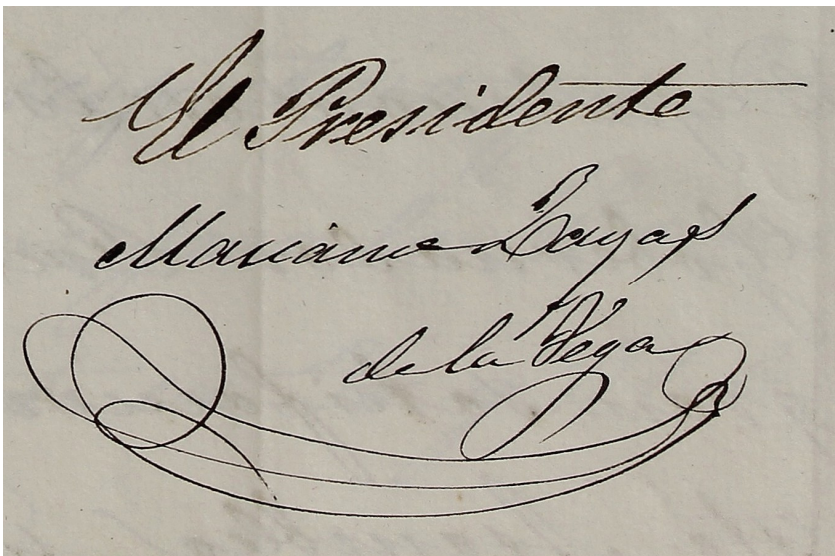 El Presidente
Mariano Zayas
de la Vega